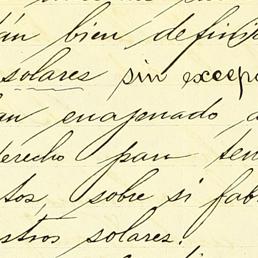 án bien definit
solares sin excep
an enajenado a
derecho para ten
tos, sobre si fab
estros solares.